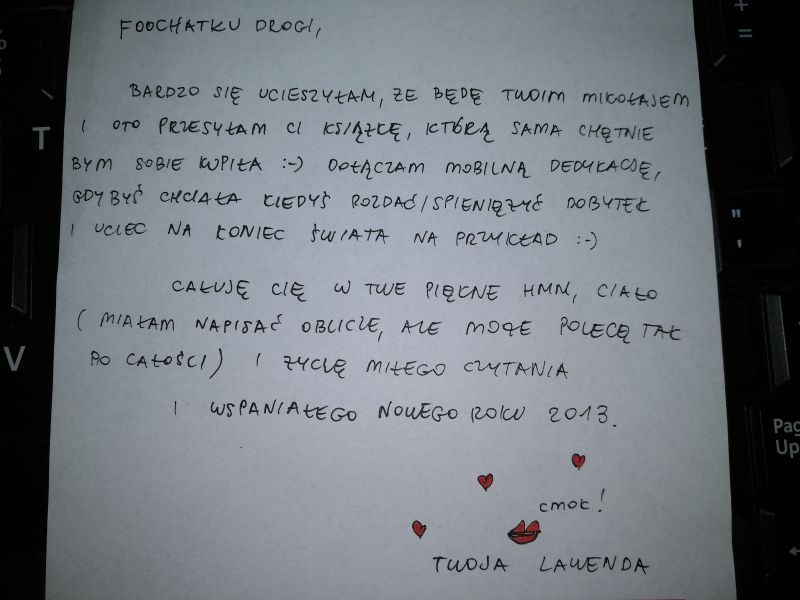 FOOCHATKU DROGI,
BARDZO SIĘ UCIESZYŁAM, ŻE BĘDĘ TWOIM MIKOŁAJEM
I OTO PRZESYŁAM CI KSIĄŻKĘ, KTÓRĄ SAMA CHĘTNIE
BYM SOBIE KUPIŁA :-) DOŁĄCZAM MOBILNĄ DEDYKACJĘ,
GDYBYŚ CHCIAŁA KIEDYŚ ROZDAĆ/SPIENIĘŻYĆ DOBYTEK
I UCIEC NA KONIEC ŚWIATA NA PRZYKŁAD :-)
CAŁUJĘ CIĘ W TWE PIĘKNE HMM, CIAŁO
(MIAŁAM NAPISAĆ OBLICZE, ALE MOŻE POLECĘ TAK
PO CAŁOŚCI) I ŻYCZĘ MIŁEGO CZYTANIA
I WSPANIAŁEGO NOWEGO ROKU 2013.
cmok!
TWOJA LAWENDA
%
5
T
V
+
=
"
'
Pag
Up